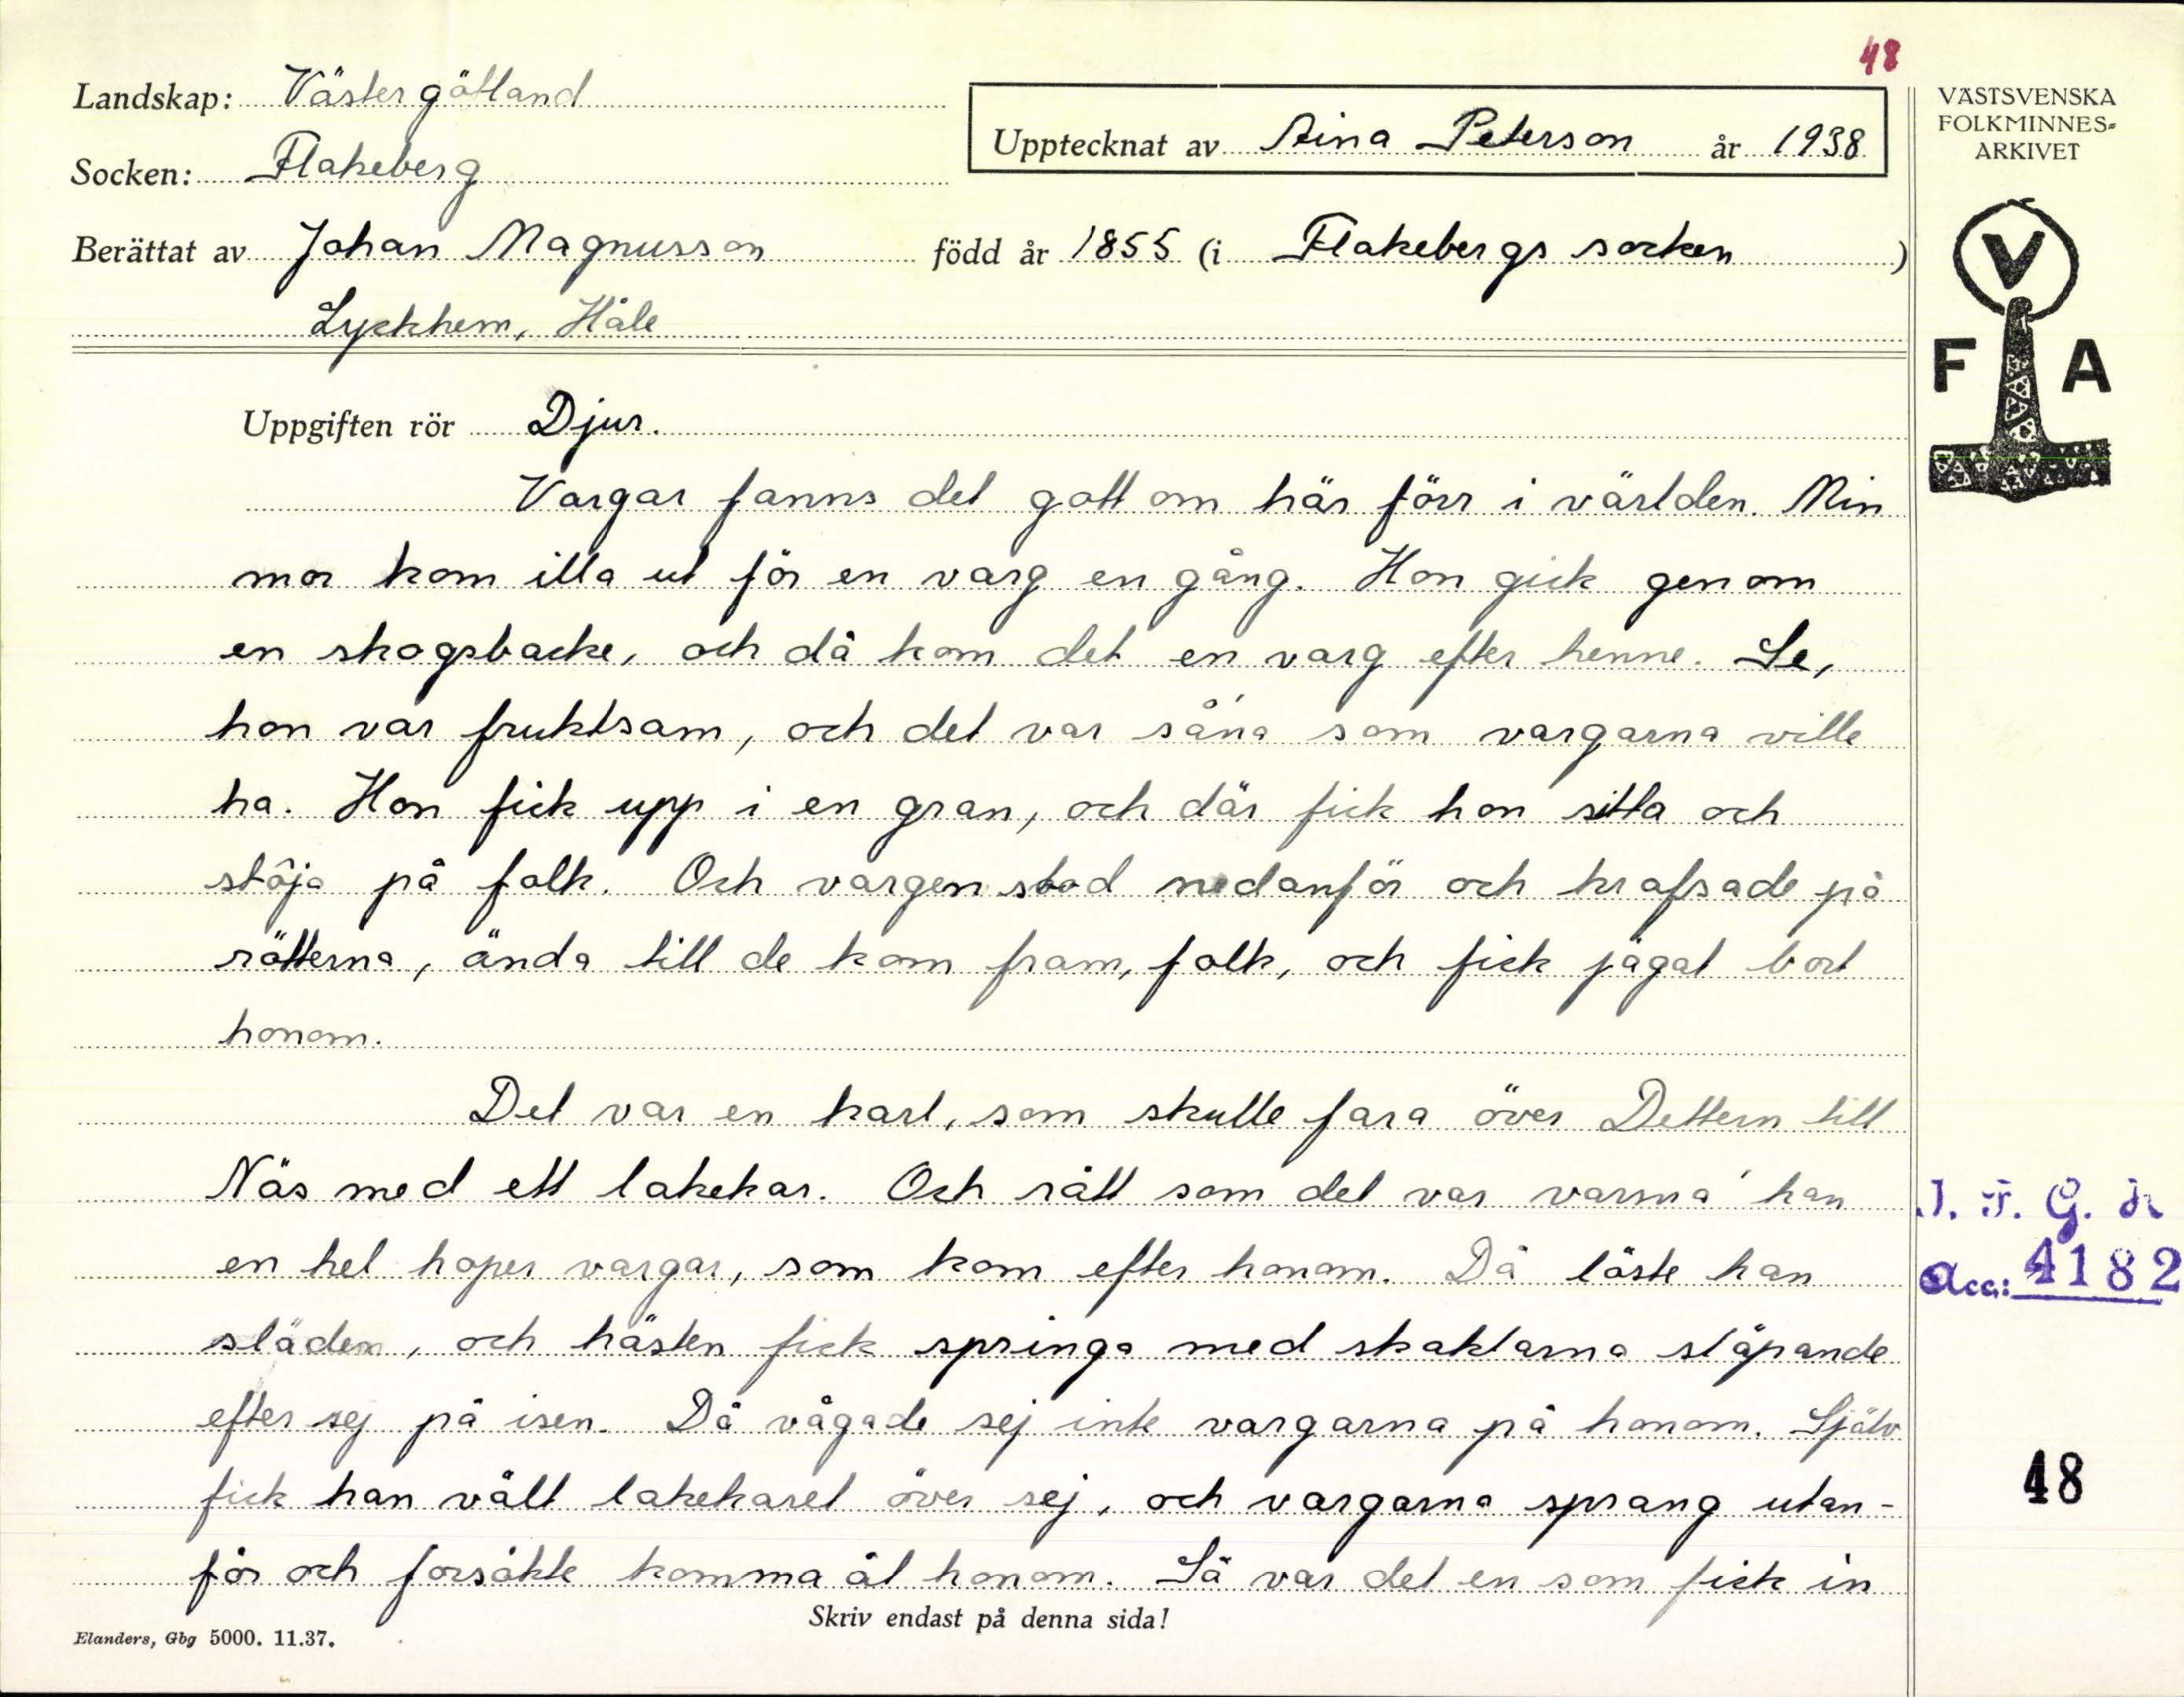 48
Landskap: Västergötland
Upptecknat av Aina Peterson år 1938
VÄSTSVENSKA
FOLKMINNES=
ARKIVET
Socken: Flakeberg
Berättat av Johan Magnusson född år 1855 (i Flakebergs socken )
Lyckhem, Håle
V
F A
Uppgiften rör Djur.
Vargar fanns det gott om här förr i världen. Min
mor kom illa ut för en varg en gång. Hon gick genom
en skogsbacke, och då kom det en varg efter henne. Se,
hon var fruktsam, och det var såna som vargarna ville
ha. Hon fick upp i en gran, och där fick hon sitta och
stöja på folk. Och vargen stod nedanför och krafsade på
rötterna, ända till de kom fram, folk, och fick jagat bort
honom.
Det var en karl, som skulle fara över Dettern till
Näs med ett lakekar. Och rätt som det var varsna' han
en hel hoper vargar, som kom efter honom. Då löste han
släden, och hästen fick springa med skaklarna släpande
efter sej på isen. Då vågade sej inte vargarna på honom. Själv
fick han vält lakekaret över sej, och vargarna sprang utan-
för och försökte komma åt honom. Så var det en som fick in
I. F. G. H
Acc: 4182
48
Skriv endast på denna sida!
Elanders, Gbg 5000. 11.37.